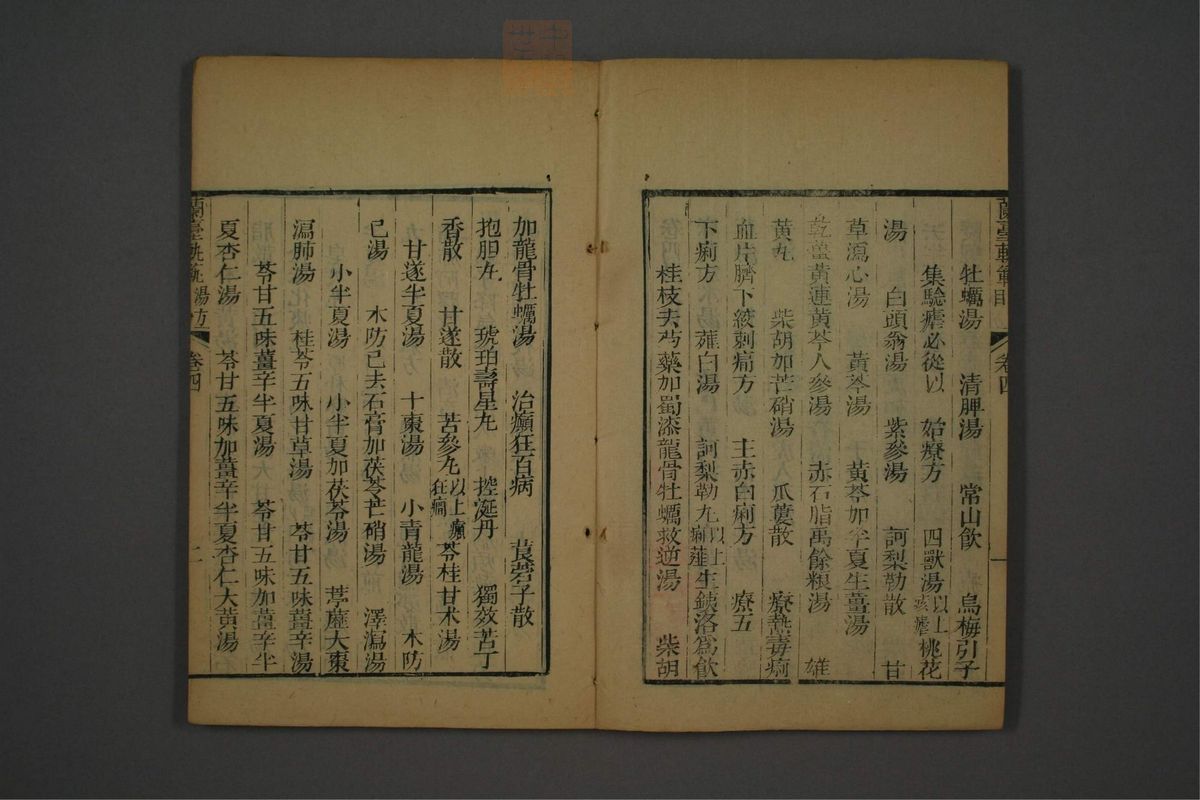 牡蠣湯　清脾湯　常山飲　烏梅引子
集驗瘧必從以　始療方　四獸湯以上痰瘧桃花
湯　白頭翁湯　紫參湯　訶梨勒散　甘
草瀉心湯　黃芩湯　黃芩加半夏生薑湯
乾薑黃連黃芩人參湯　赤石脂禹餘粮湯　雄
黃丸　柴胡加芒硝湯　瓜蔞散　療熱毒痢
血片臍下絞刺痛方　主赤白痢方　療五
下痢方　薤白湯　訶梨勒丸以上痢薤生鐵洛爲飲
桂枝去芍藥加蜀漆龍骨牡蠣救逆湯　柴胡
加龍骨牡蠣湯　治癲狂百病　莨菪子散
抱胆丸　琥珀壽星丸　控涎丹　獨效苦丁
香散　甘遂散　苦參丸以上癲狂癇苓桂甘术湯
甘遂半夏湯　十棗湯　小青龍湯　木防
已湯　木防已去石膏加茯苓芒硝湯　澤瀉湯
小半夏湯　小半夏加茯苓湯　葶藶大棗
瀉肺湯　桂苓五味甘草湯　苓甘五味薑辛湯
苓甘五味薑辛半夏湯　苓甘五味加薑辛半
夏杏仁湯　苓甘五味加薑辛半夏杏仁大黃湯
蘭臺軌範目　卷四　一
蘭臺軌範湯方　卷四　二